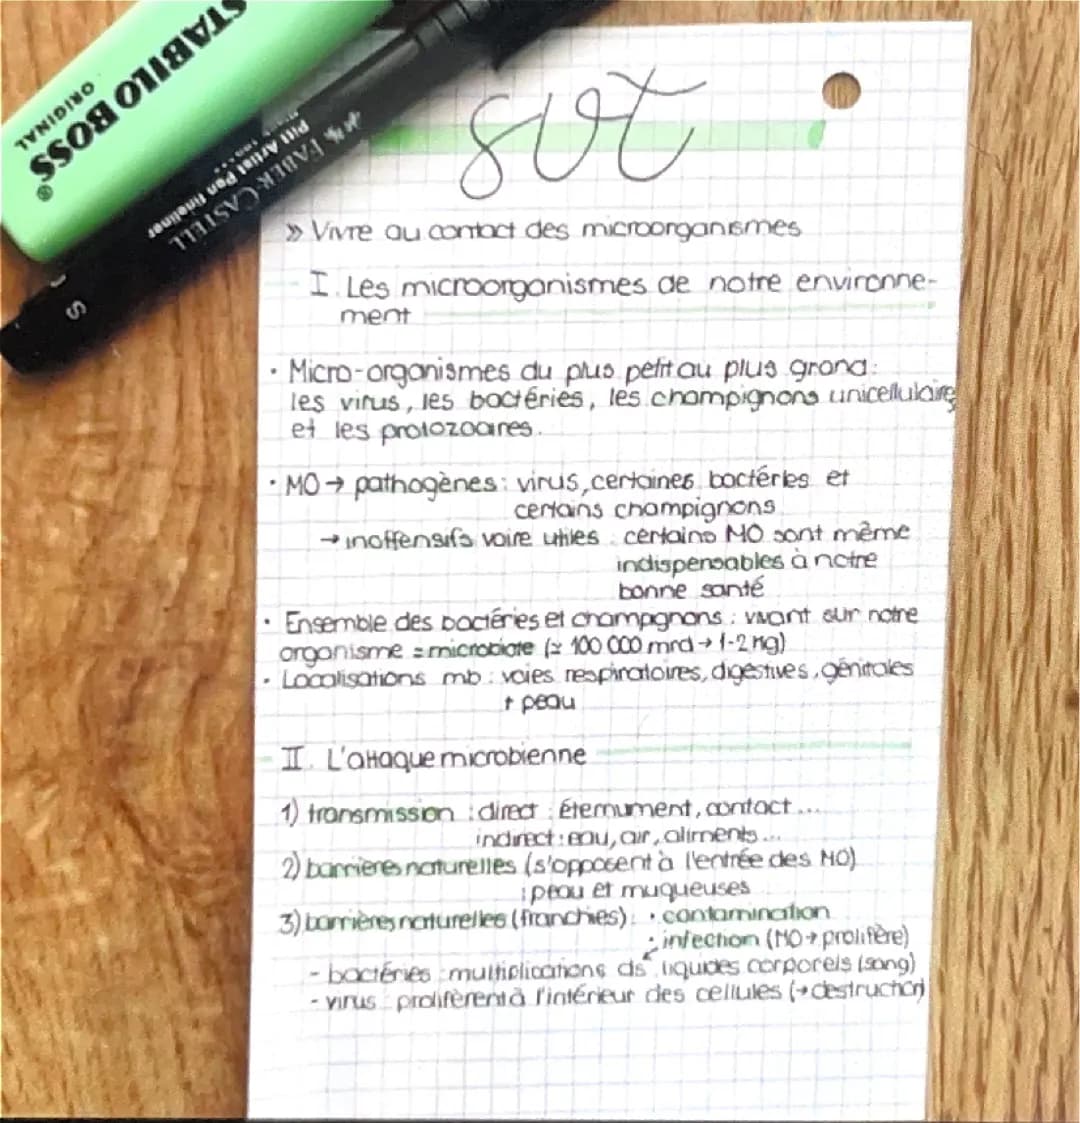 STABILO BOSS
ORIGINAL
FABER-CASTELL
Pitt Artist Pen fineliner
S
SVT
» Vivre au contact des microorganismes
I. Les microorganismes de notre environne-
ment
• Micro-organismes du plus petit au plus grand :
les virus, les bactéries, les champignons unicellulaires
et les protozoaires.
• MO → pathogènes : virus, certaines bactéries et
certains champignons
→ inoffensifs voire utiles : certains MO sont même
indispensables à notre
bonne santé
• Ensemble des bactéries et champignons : vivant sur notre
organisme = microbiote (≃ 100 000 mrd → 1-2 kg)
• Localisations mb : voies respiratoires, digestives, génitales
+ peau
II. L'attaque microbienne
1) transmission : direct : éternument, contact...
indirect : eau, air, aliments...
2) barrières naturelles (s'opposent à l'entrée des MO)
: peau et muqueuses
3) barrières naturelles (franchies) : • contamination
• infection (MO → prolifère)
- bactéries : multiplications ds liquides corporels (sang)
- virus : prolifèrent à l'intérieur des cellules (→ destruction)